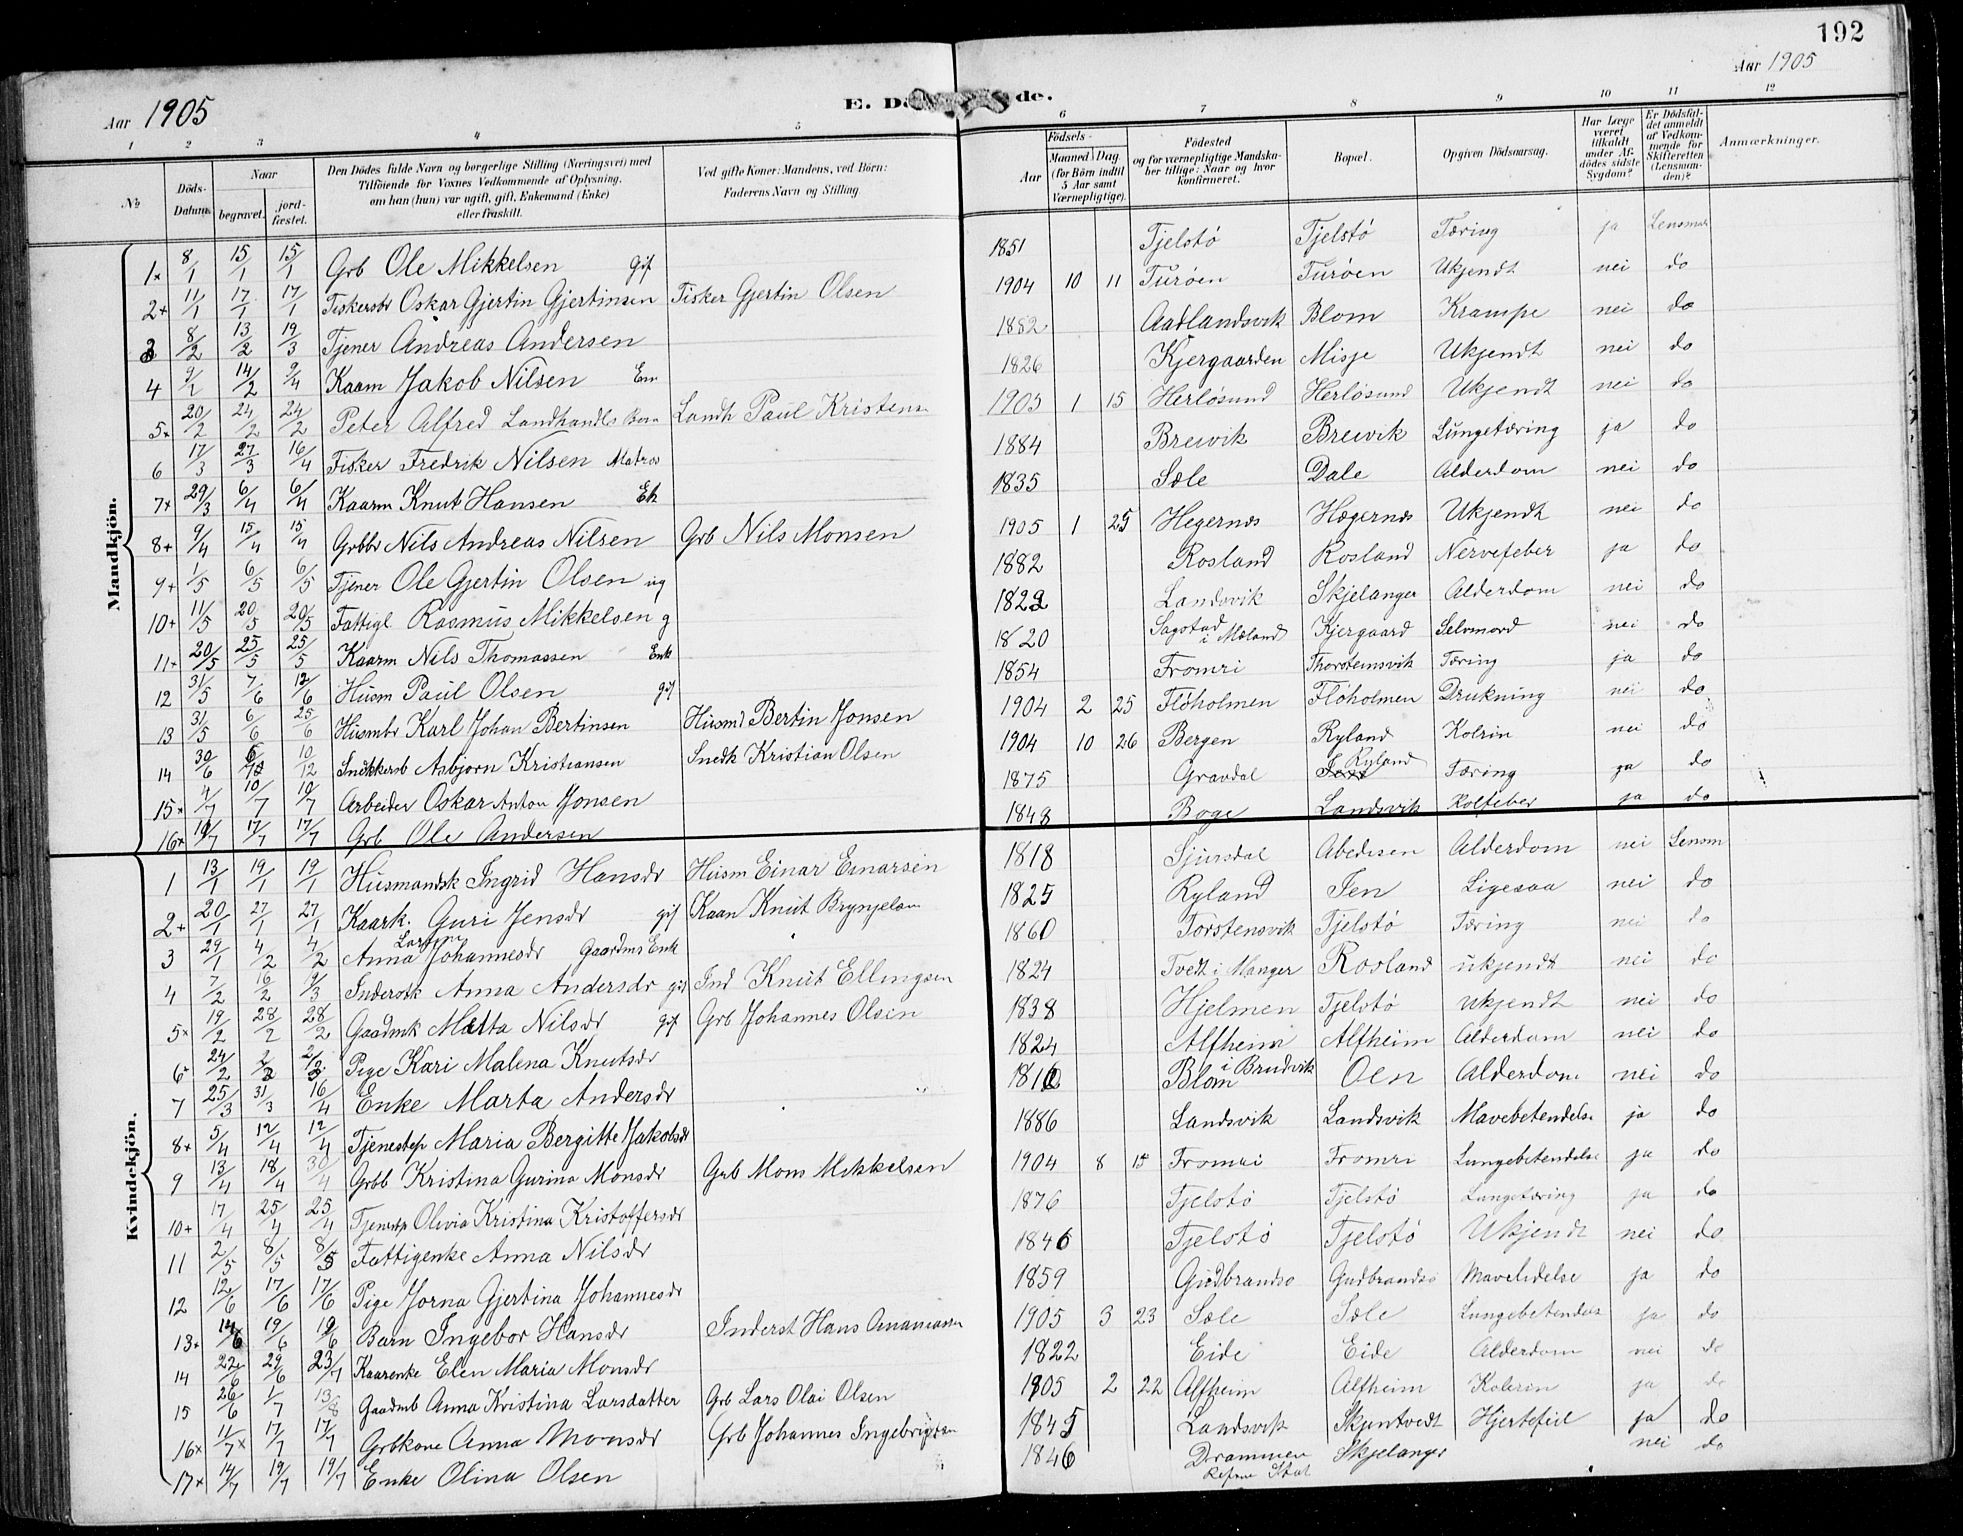 192
Aar 1905
E. Dø de.
Aar 1905
1 2 3 4 5 6 7 8 9 10 11 12
№ Døds-Datum. Naar begravet. jordfæstet. Den Dødes fulde Navn og borgerlige Stilling (Næringsvei) med Tilføiende for Voxnes Vedkommende af Oplysning, om han (hun) var ugift, gift, Enkemand (Enke) eller fraskilt. Ved gifte Koner: Mandens, ved Børn: Faderens Navn og Stilling. Fødsels- Aar Maaned Dag (for Børn indtil 5 Aar samt Værnepligtige). Fødested og for værnepligtige Mandskaber tillige: Naar og hvor konfirmeret. Bopæl. Opgiven Dødsaarsag. Har Læge været tilkaldt under Afdødes sidste Sygdom? Er Dødsfaldet anmeldt af Vedkommende for Skifteretten (Lensmanden)? Anmærkninger.
Mandkjön.
1x 8/1 15/1 15/1 Grb Ole Mikkelsen Gif 1851 Tjelstø Tjelstø Tæring ja Lensman
2+ 11/1 17/1 17/1 Fiskersbr Oskar Gjertin Gjertinsen Fisker Gjertin Olsen 1904 10 11 Turøen Turøen Ukjendt nei do
3 8/2 13/2 19/3 Tjener Andreas Andersen 1882 Aadlandsvik Blom Krampe nei do
4 9/2 14/2 9/4 Kaarm Jakob Nilsen Em 1826 Kjergaarden Misje Ukjendt nei do
5x 20/2 24/2 24/2 Peter Alfred Landhandls Barn Landh Paul Kristens 1905 1 15 Herløsund Herløsund Ukjendt nei do
6 17/3 27/3 16/4 Fisker Fredrik Nilsen Matros 1884 Breivik Breivik Lungetæring ja do
7x 29/3 6/4 6/4 Kaarm Knut Hansen Ek 1835 Sæle Dale Alderdom nei do
8+ 9/4 15/4 15/4 Grbbr Nils Andreas Nilsen Grb Nils Monsen 1905 1 25 Hegernes Hægernes Ukjendt nei do
9+ 1/5 6/5 6/5 Tjener Ole Gjertin Olsen ug 1882 Rosland Rosland Nervefeber ja do
10+ 11/5 20/5 20/5 Fattigl Rasmus Mikkelsen g 1822 Landsvik Skjelanger Alderdom nei do
11x 20/5 25/5 25/5 Kaarm Nils Thomassen Enk 1820 Sagstad i Mæland Kjergaard Selvmord nei do
12 31/5 7/6 12/6 Husm Paul Olsen gif 1854 Fromri Thorsteinsvik Tæring ja do
13 31/5 6/6 25/6 Husmbr Karl Johan Bertinsen Husmd Bertin Jonsen 1904 2 25 Fløholmen Fløholmen Drukning nei do
14 30/6 10/12 Snikkersb Asbjorn Kristiansen Snedk Kristian Olsen 1904 10 26 Bergen Ryland Kolrin nei do
15x 4/7 10/7 10/7 Arbeider Oskar Anton Jonsen 1875 Gravdal Ryland Tæring ja do
16x 10/7 17/7 17/7 Grb Ole Andersen 1848 Boge Landsvik Kolfeber ja do
Kvindekjön.
1 13/1 19/1 19/1 Husmandsk Ingrid Hansdr Husm Einar Einarsen 1818 Sjursdal Abedisen Alderdom nei Lensm
2+ 20/1 27/1 27/1 Kaark. Guri Jensdr gif Kaan Knut Brynjelsen 1825 Ryland Jen Ligesaa nei do
3 29/1 4/2 4/2 Anna Johannesdr Gaardms Enk 1860 Torstensvik Tjelstø Tæring nei do
4 7/2 16/2 9/3 Inderstk Anna Andersdr gif Ind Knut Ellingsen 1824 Tvedt i Manger Rosland ukjendt nei do
5x 19/2 28/2 28/2 Gaadmk Matta Nilsdr gif Grb Johannes Olsen 1838 Hjelmen Tjelstø ukjendt nei do
6x 24/2 2/3 2/3 Pige Kari Malena Knutsdr 1824 Alfheim Alfheim Alderdom nei do
7 25/3 31/3 16/4 Enke Marta Andersdr Blom i Bruvik Oen Alderdom nei do
8+ 5/4 12/4 12/4 Tjenestep Maria Bergitte Jakobsdr 1886 Landsvik Landsvik Mavebetendelse ja do
9 13/4 18/4 30/4 Grbb Kristina Gurina Monsdr Grb Mons Mikkelsen 1904 8 15 Fromri Fromri Lungebetendelse ja do
10+ 17/4 25/4 25/4 Tjenstp Olivia Kristina Kristoffersdr 1876 Tjelstø Tjelstø Lungetæring ja do
11 2/5 8/5 8/5 Fattigenke Anna Nilsdr 1846 Tjelstø Tjelstø Ukjendt nei do
12 12/6 17/6 17/6 Pige Jorna Gjertina Johannesdr 1859 Gudbrandsø Gudbrandsø Mavelidelse ja do
13+ 14/6 19/6 19/6 Barn Ingebor Hansdr Inderst Hans Amamassen 1905 3 23 Sæle Sæle Lungebetendelse ja do
14 22/6 29/6 23/7 Kaarenke Elen Maria Monsdr 1822 Eide Eide Alderdom nei do
15 26/6 1/7 13/8 Gaadmb Anna Kristina Larsdatter Grb Lars Olai Olsen 1905 2 22 Alfheim Alfheim Kolerin ja do
16x 11/7 17/7 17/7 Grbkone Anna Monsdr Grb Johannes Ingebrigtsen 1845 Landsvik Skjentvedt Hjertefeil ja do
17x 14/7 19/7 19/7 Enke Olina Olsen 1846 Drammen Skjelanger nei do